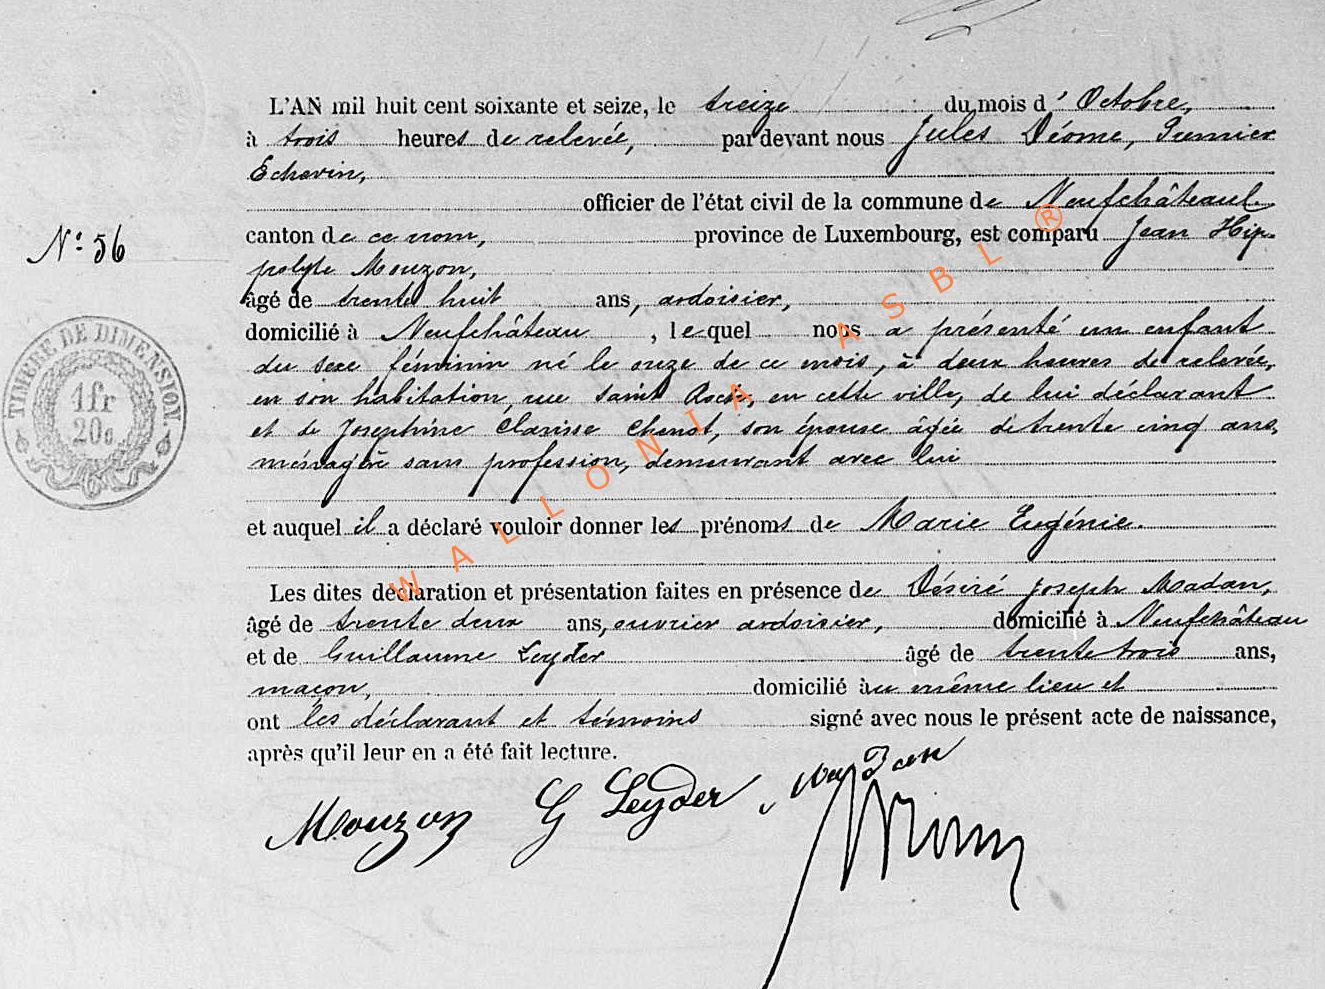 L'AN mil huit cent soixante et seize, le treize du mois d'Octobre,
à trois heures de relevée, par devant nous Jules Déome, Premier
Echevin,
officier de l'état civil de la commune de Neufchâteau
canton de ce nom, province de Luxembourg, est comparu Jean Hip-
polyte Mouzon,
âgé de trente huit ans, ardoisier,
domicilié à Neufchâteau, lequel nous a présenté un enfant
du sexe féminin né le onze de ce mois, à deux heures de relevée,
en son habitation, rue Saint Roch, en cette ville, de lui déclarant
et de Joséphine Clarisse Chenot, son épouse âgée de trente cinq ans,
ménagère sans profession, demeurant avec lui
et auquel il a déclaré vouloir donner les prénoms de Marie Eugénie.
Les dites déclaration et présentation faites en présence de Désiré Joseph Madan,
âgé de trente deux ans, ouvrier ardoisier, domicilié à Neufchâteau
et de Guillaume Leyder âgé de trente trois ans,
maçon, domicilié au même lieu et
ont les déclarant et témoins signé avec nous le présent acte de naissance,
après qu'il leur en a été fait lecture.
N° 56
TIMBRE DE DIMENSION.
1 fr
20c
Mouzon G Leyder
WALLONIA ASBL ®